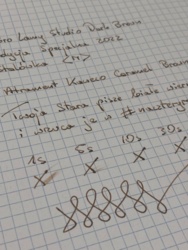 Pióro Lamy Studio Dark Brown
Edycja Specjalna 2022
Stalówka <M>
Atrament Kaweco Caramel Brown
Twoja stara pisze białe wiersze
i wrzuca je w #naczteryrece
1s 5s 10s 30s
X X X X